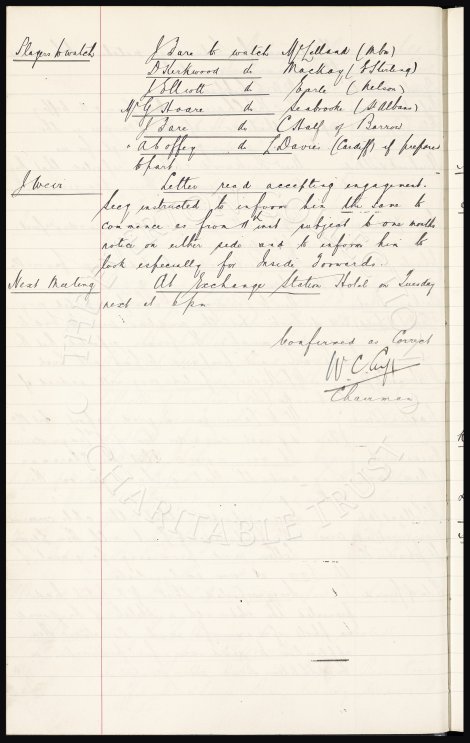 Players to watch J Bare to watch McLelland (Mbro)
D Kirkwood do Mackay (E Stirling)
J Elliott do Earle (Nelson)
Mr G Hoare do Seabrooke (St Albans)
J Bare do C Half of Barrow
" A Coffey do L Davies (Cardiff) if prepared
to part
J Weir Letter read accepting engagement.
Secy instructed to inform him the same to
commence as from 11th inst subject to one months
notice on either side and to inform him to
look especially for Inside Forwards.
Next Meeting At Exchange Station Hotel on Tuesday
next at 6 pm
Confirmed as Correct
W. C. Cuff
Chairman
CHARITABLE TRUST